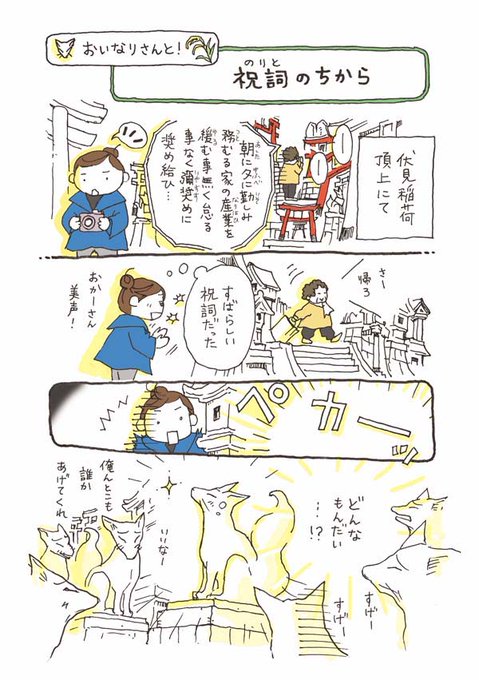 おいなりさんと！
祝詞のちから
のりと
伏見稲荷
頂上にて
朝に夕に勤しみ
務むる家の産業を
緩む事無く怠る
事なく彌奨めに
奨め給ひ…
さー
帰ろ
すばらしい
祝詞だった
おかーさん
美声！
ペカーッ
どんな
もんだい
…!?
すげー
すげー
いいなー
俺んとこも
誰か
あげてくれ